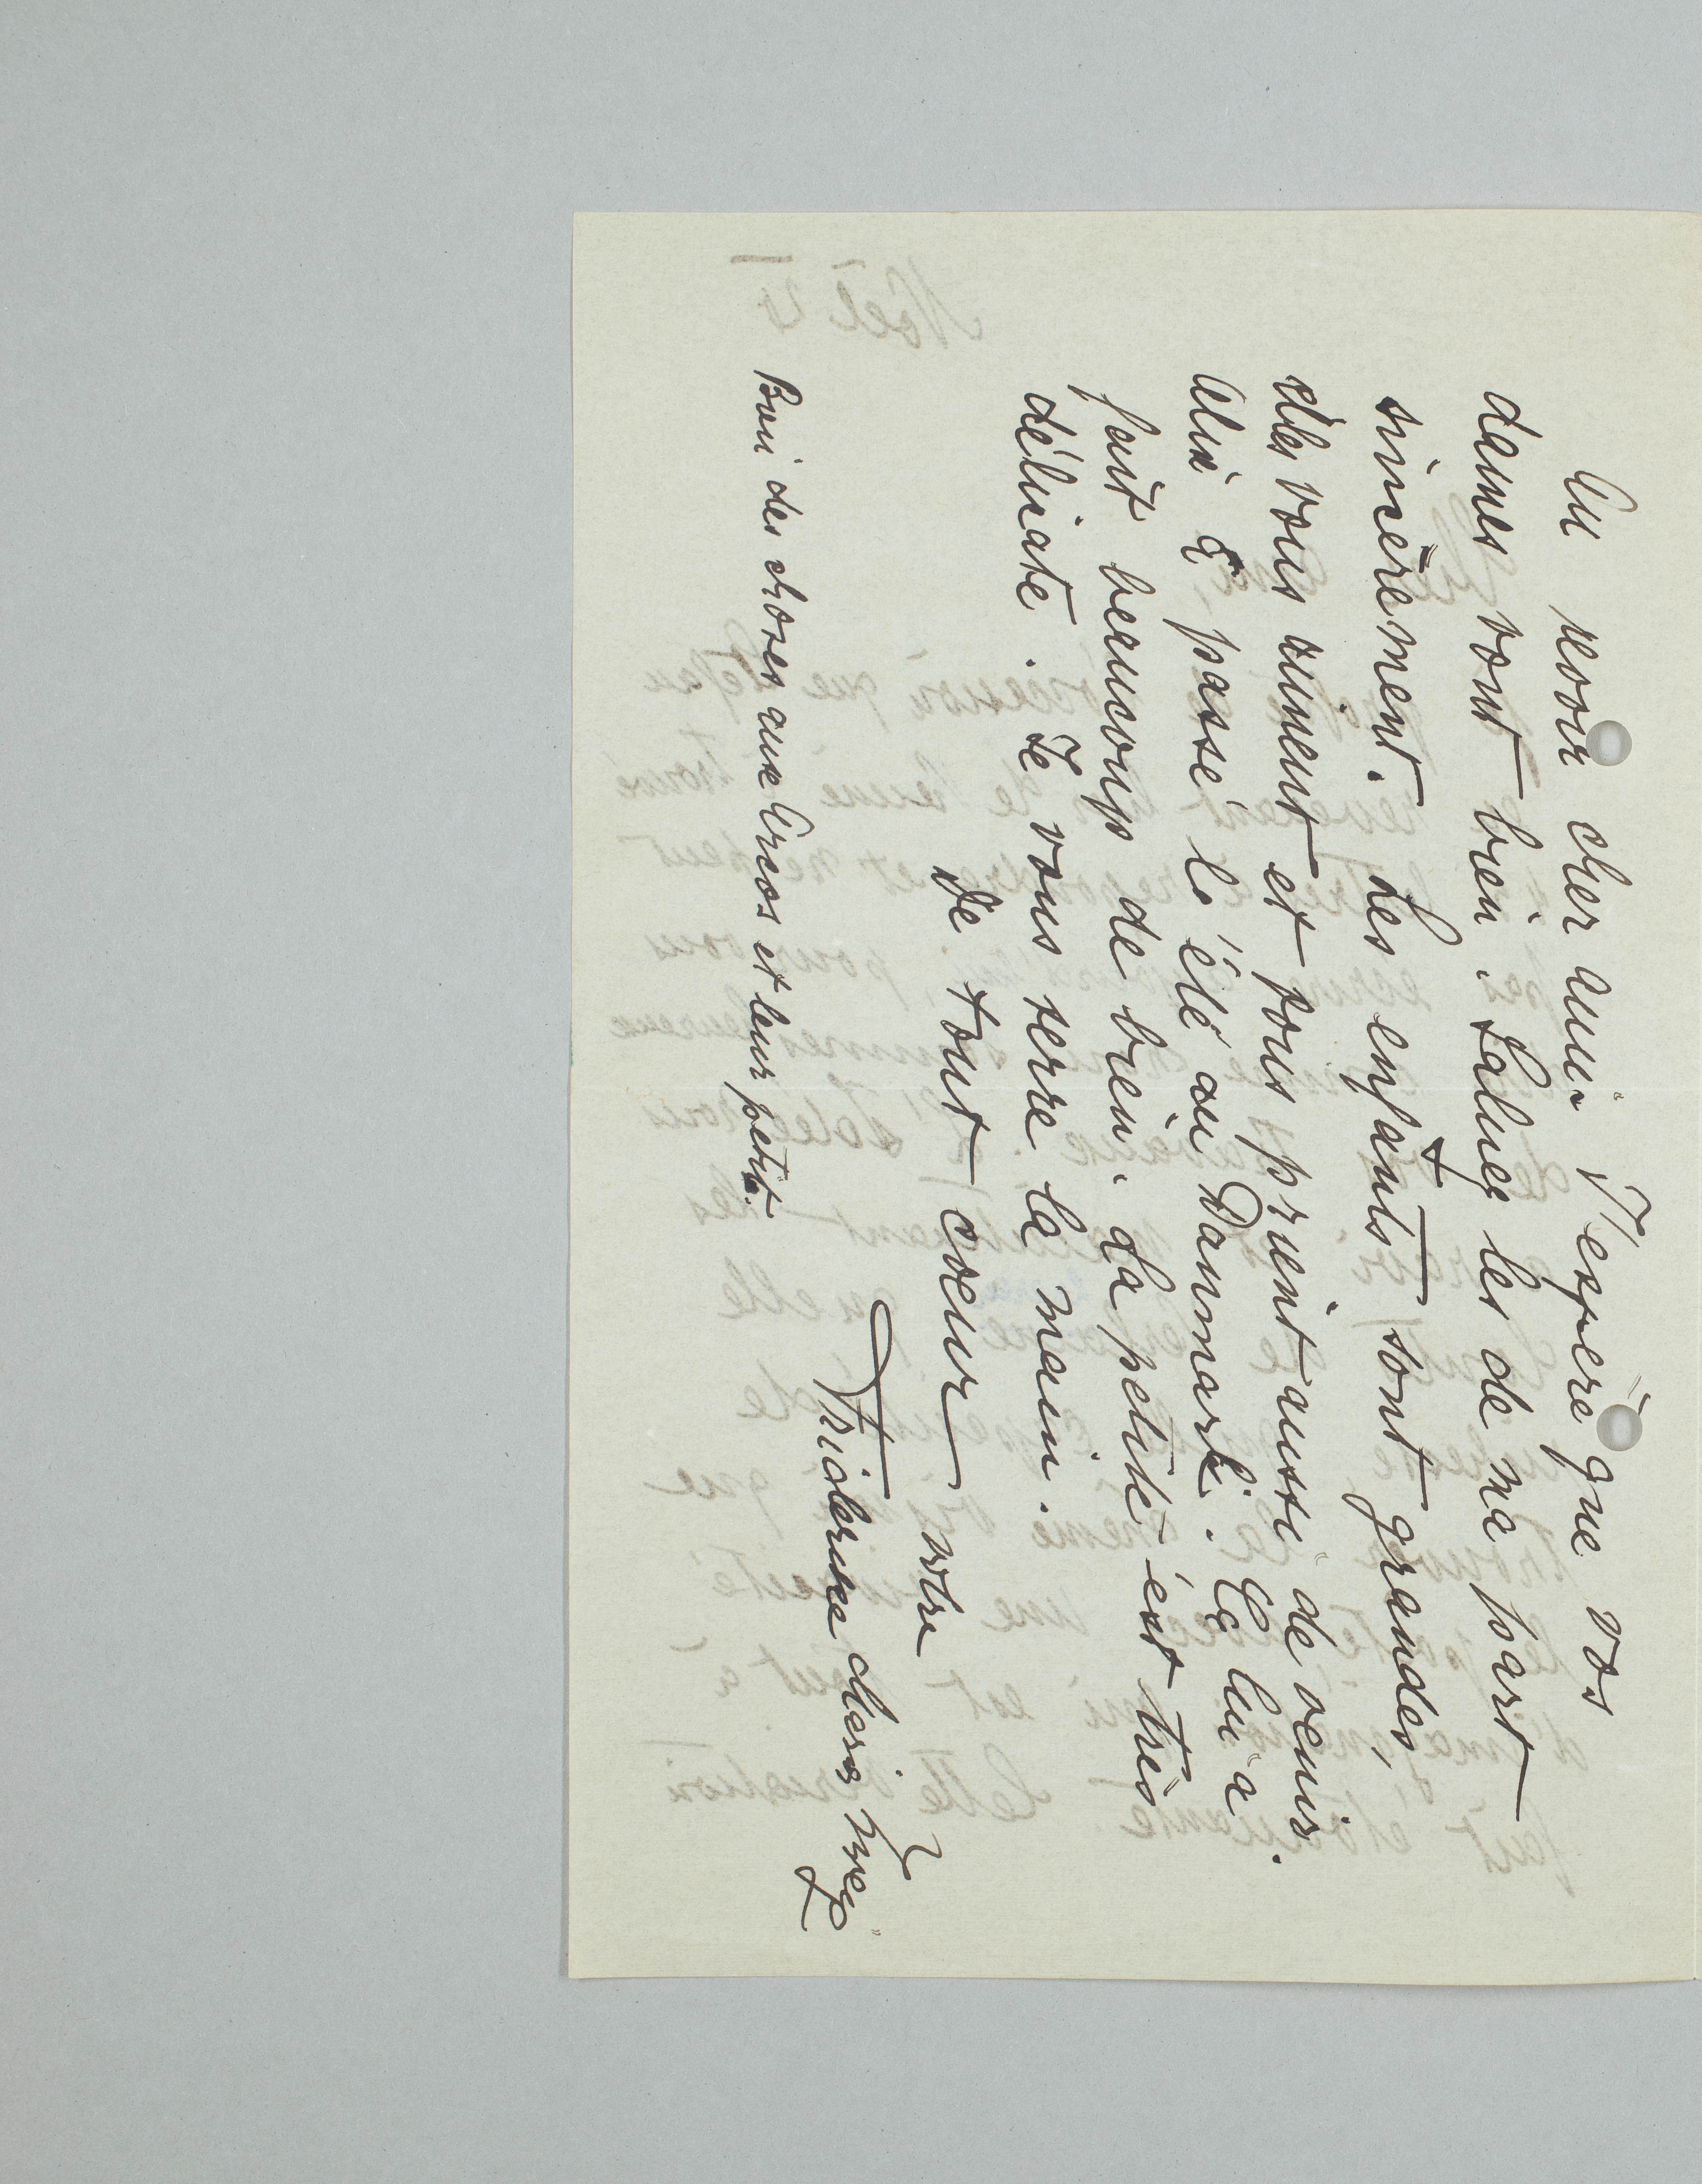 Au revoir cher ami. J'espère que vos
dames vont bien. Saluez les de ma part
sincèrement. Les enfants sont grandes,
elles vous aiment et vous prient aussi de venir.
Alix a passé le été au Danmark. Ca lui a
fait beaucoup de bien. La petite est très
délicate. Je vous serre la main.
De tout coeur votre
Friderike Maria Zweig
Bien des choses aux Arcos et leur petit.